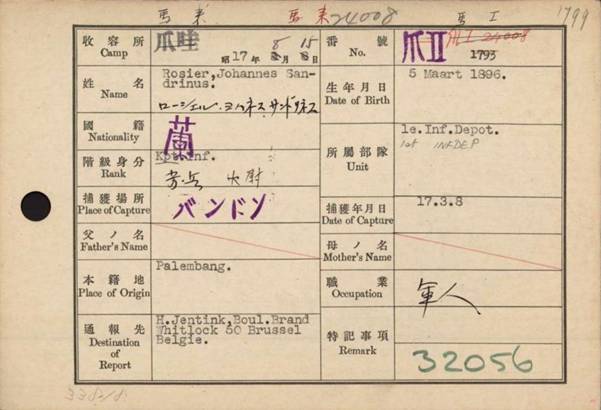 馬来 馬来 24008 馬I 1799
收容所 Camp 爪哇 昭17年 8月 15日
番號 No. 爪II 1793
姓名 Name Rosier,Johannes San-
drinus.
生年月日 Date of Birth 5 Maart 1896.
國籍 Nationality 蘭
階級身分 Rank Kpt.Inf. 大尉
所屬部隊 Unit 1e.Inf.Depot.
1st INF DEP
捕獲場所 Place of Capture バンドン
捕獲年月日 Date of Capture 17.3.8
父ノ名 Father's Name
母ノ名 Mother's Name
本籍地 Place of Origin Palembang.
職業 Occupation 軍人
通報先 Destination of Report H.Jentink,Boul.Brand
Whitlock 50 Brussel
Belgie.
特記事項 Remark 32056